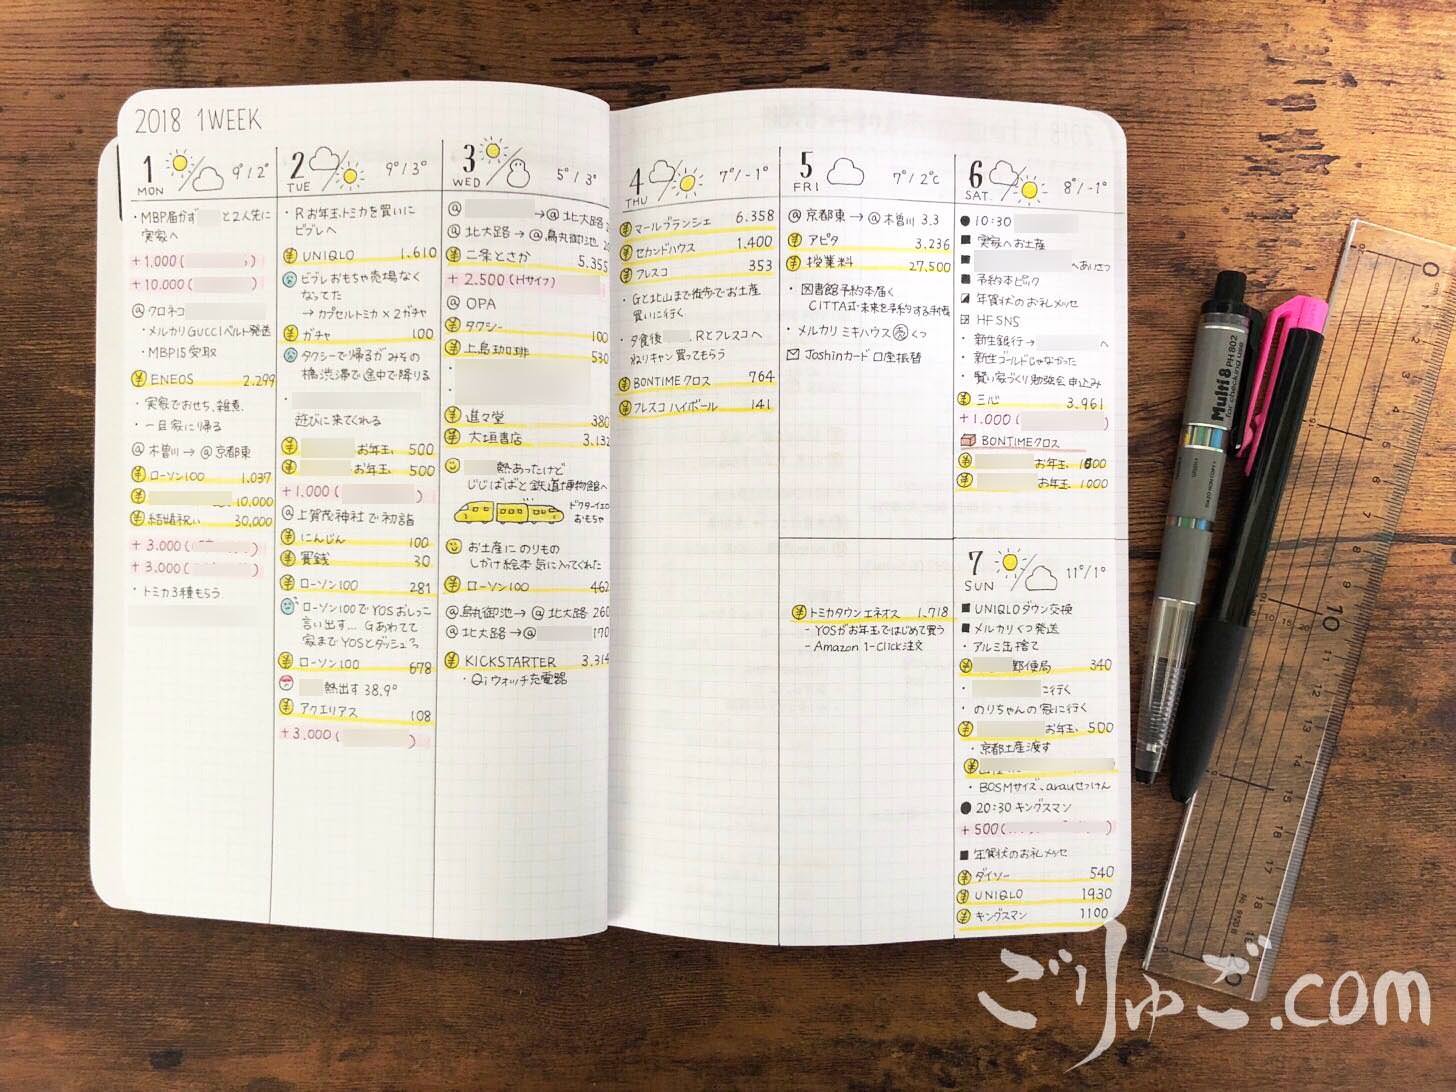 2018 1WEEK
1
MON
9°/2°
・MBP届かず と2人先に
実家へ
+1.000( )
+10.000( )
@クロネコ
・メルカリGUCCIベルト発送
・MBP15受取
¥ENEOS 2.299
・実家でおせち、雑煮、
・一旦家に帰る
@木曽川→@京都東
¥ローソン100 1.037
¥ 10.000
¥結婚祝い 30,000
+3.000( )
+3.000( )
・トミカ3種もらう
2
TUE
9°/3°
・Rお年玉トミカを買いに
ビブレへ
¥UNIQLO 1.610
ビブレおもちゃ売場なく
なってた
→カプセルトミカ×2ガチャ
¥ガチャ 100
タクシーで帰るがみその
橋渋滞で途中で降りる
・
遊びに来てくれる
¥ お年玉 500
¥ お年玉 500
+1.000( )
@上賀茂神社で初詣
¥にんじん 100
¥賽銭 30
¥ローソン100 281
ローソン100でYOSおしっこ
言い出す… Gあわてて
家までYOSとダッシュ
¥ローソン100 678
熱出す 38.9°
¥アクエリアス 108
+3.000( )
3
WED
5°/3°
@ →@北大路
@北大路→@烏丸御池
¥二条とさか 5.355
+2.500(Hサイフ)
@OPA
¥タクシー 100
¥上島珈琲 530
・
¥進々堂 380
¥大垣書店 3.132
熱あったけど
じじばばと鉄道博物館へ
ドクターイエロー
おもちゃ
お土産にのりもの
しかけ絵本 気に入ってくれた
¥ローソン100 462
@烏丸御池→@北大路 260
@北大路→@ 170
¥KICKSTARTER 3.314
・Qiウォッチ充電器
4
THU
7°/-1°
¥マールブランシェ 6.358
¥セカンドハウス 1.400
¥フレスコ 353
・Gと北山まで徒歩でお土産
買いに行く
・夕食後 、Rとフレスコへ
ねりキャン買ってもらう
¥BONTIMEクロス 764
¥フレスコ ハイボール 141
5
FRI
7°/2°C
@京都東→@木曽川 3.3
¥アピタ 3.236
¥授業料 27,500
・図書館予約本届く
CITTA式・未来を予約する手帳
・メルカリ ミキハウス くつ
Joshinカード 口座振替
¥トミカタウンエネオス 1.718
- YOSがお年玉ではじめて買う
- Amazon 1-Click注文
6
SAT.
8°/-1°
●10:30
■実家へお土産
■ へあいさつ
■予約本ピック
年賀状のお礼メッセ
HF SNS
・新生銀行→ へ
・新生ゴールドじゃなかった
・賢い家づくり勉強会申込み
¥三心 3.961
+1.000( )
BONTIMEクロス
¥ お年玉 1000
¥ お年玉 1000
7
SUN
11°/1°
■UNIQLOダウン交換
■メルカリくつ発送
・アルミ缶捨て
¥ 郵便局 340
・ に行く
・のりちゃんの家に行く
¥ お年玉 500
・京都土産渡す
¥
・BOSMサイズ、arauせっけん
●20:30 キングスマン
+500( )
■年賀状のお礼メッセ
¥ダイソー 540
¥UNIQLO 1930
¥キングスマン 1100
Multi 8 PH802
for checking use
ごりゅご.com